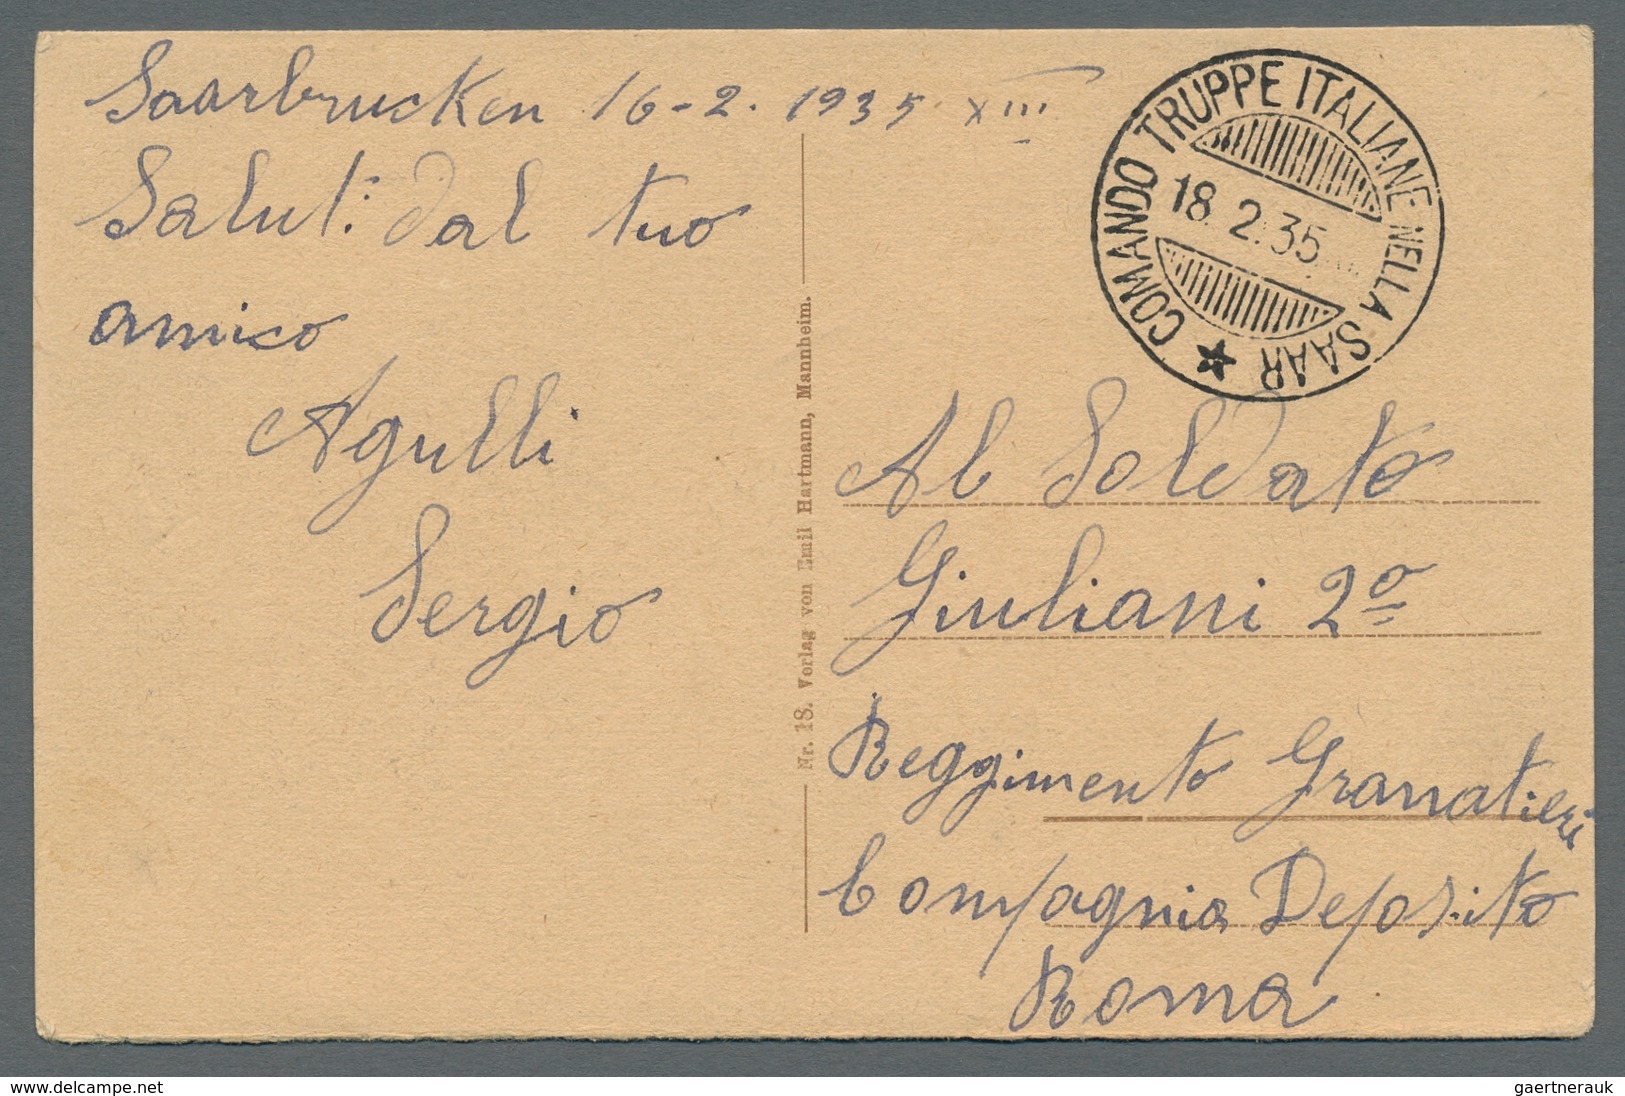 Saarbrucken 16-2. 1935. XIII
Saluti dal tuo
amico
Agulli
Sergio
Nr. 18. Verlag von Emil Hartmann, Mannheim.
COMANDO TRUPPE ITALIANE NELLA SAAR ★
18. 2. 35
Al Soldato
Giuliani 2º
Reggimento Granatieri
Compagnia Deposito
Roma
www.delcampe.net
gaertnerauk